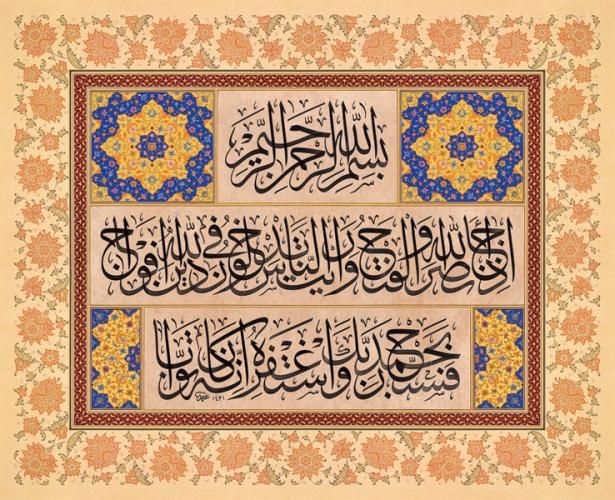 بسم الله الرحمن الرحيم
إذا جاء نصر الله والفتح ورأيت الناس يدخلون في دين الله أفواجا
فسبح بحمد ربك واستغفره إنه كان توابا
١٤٢١